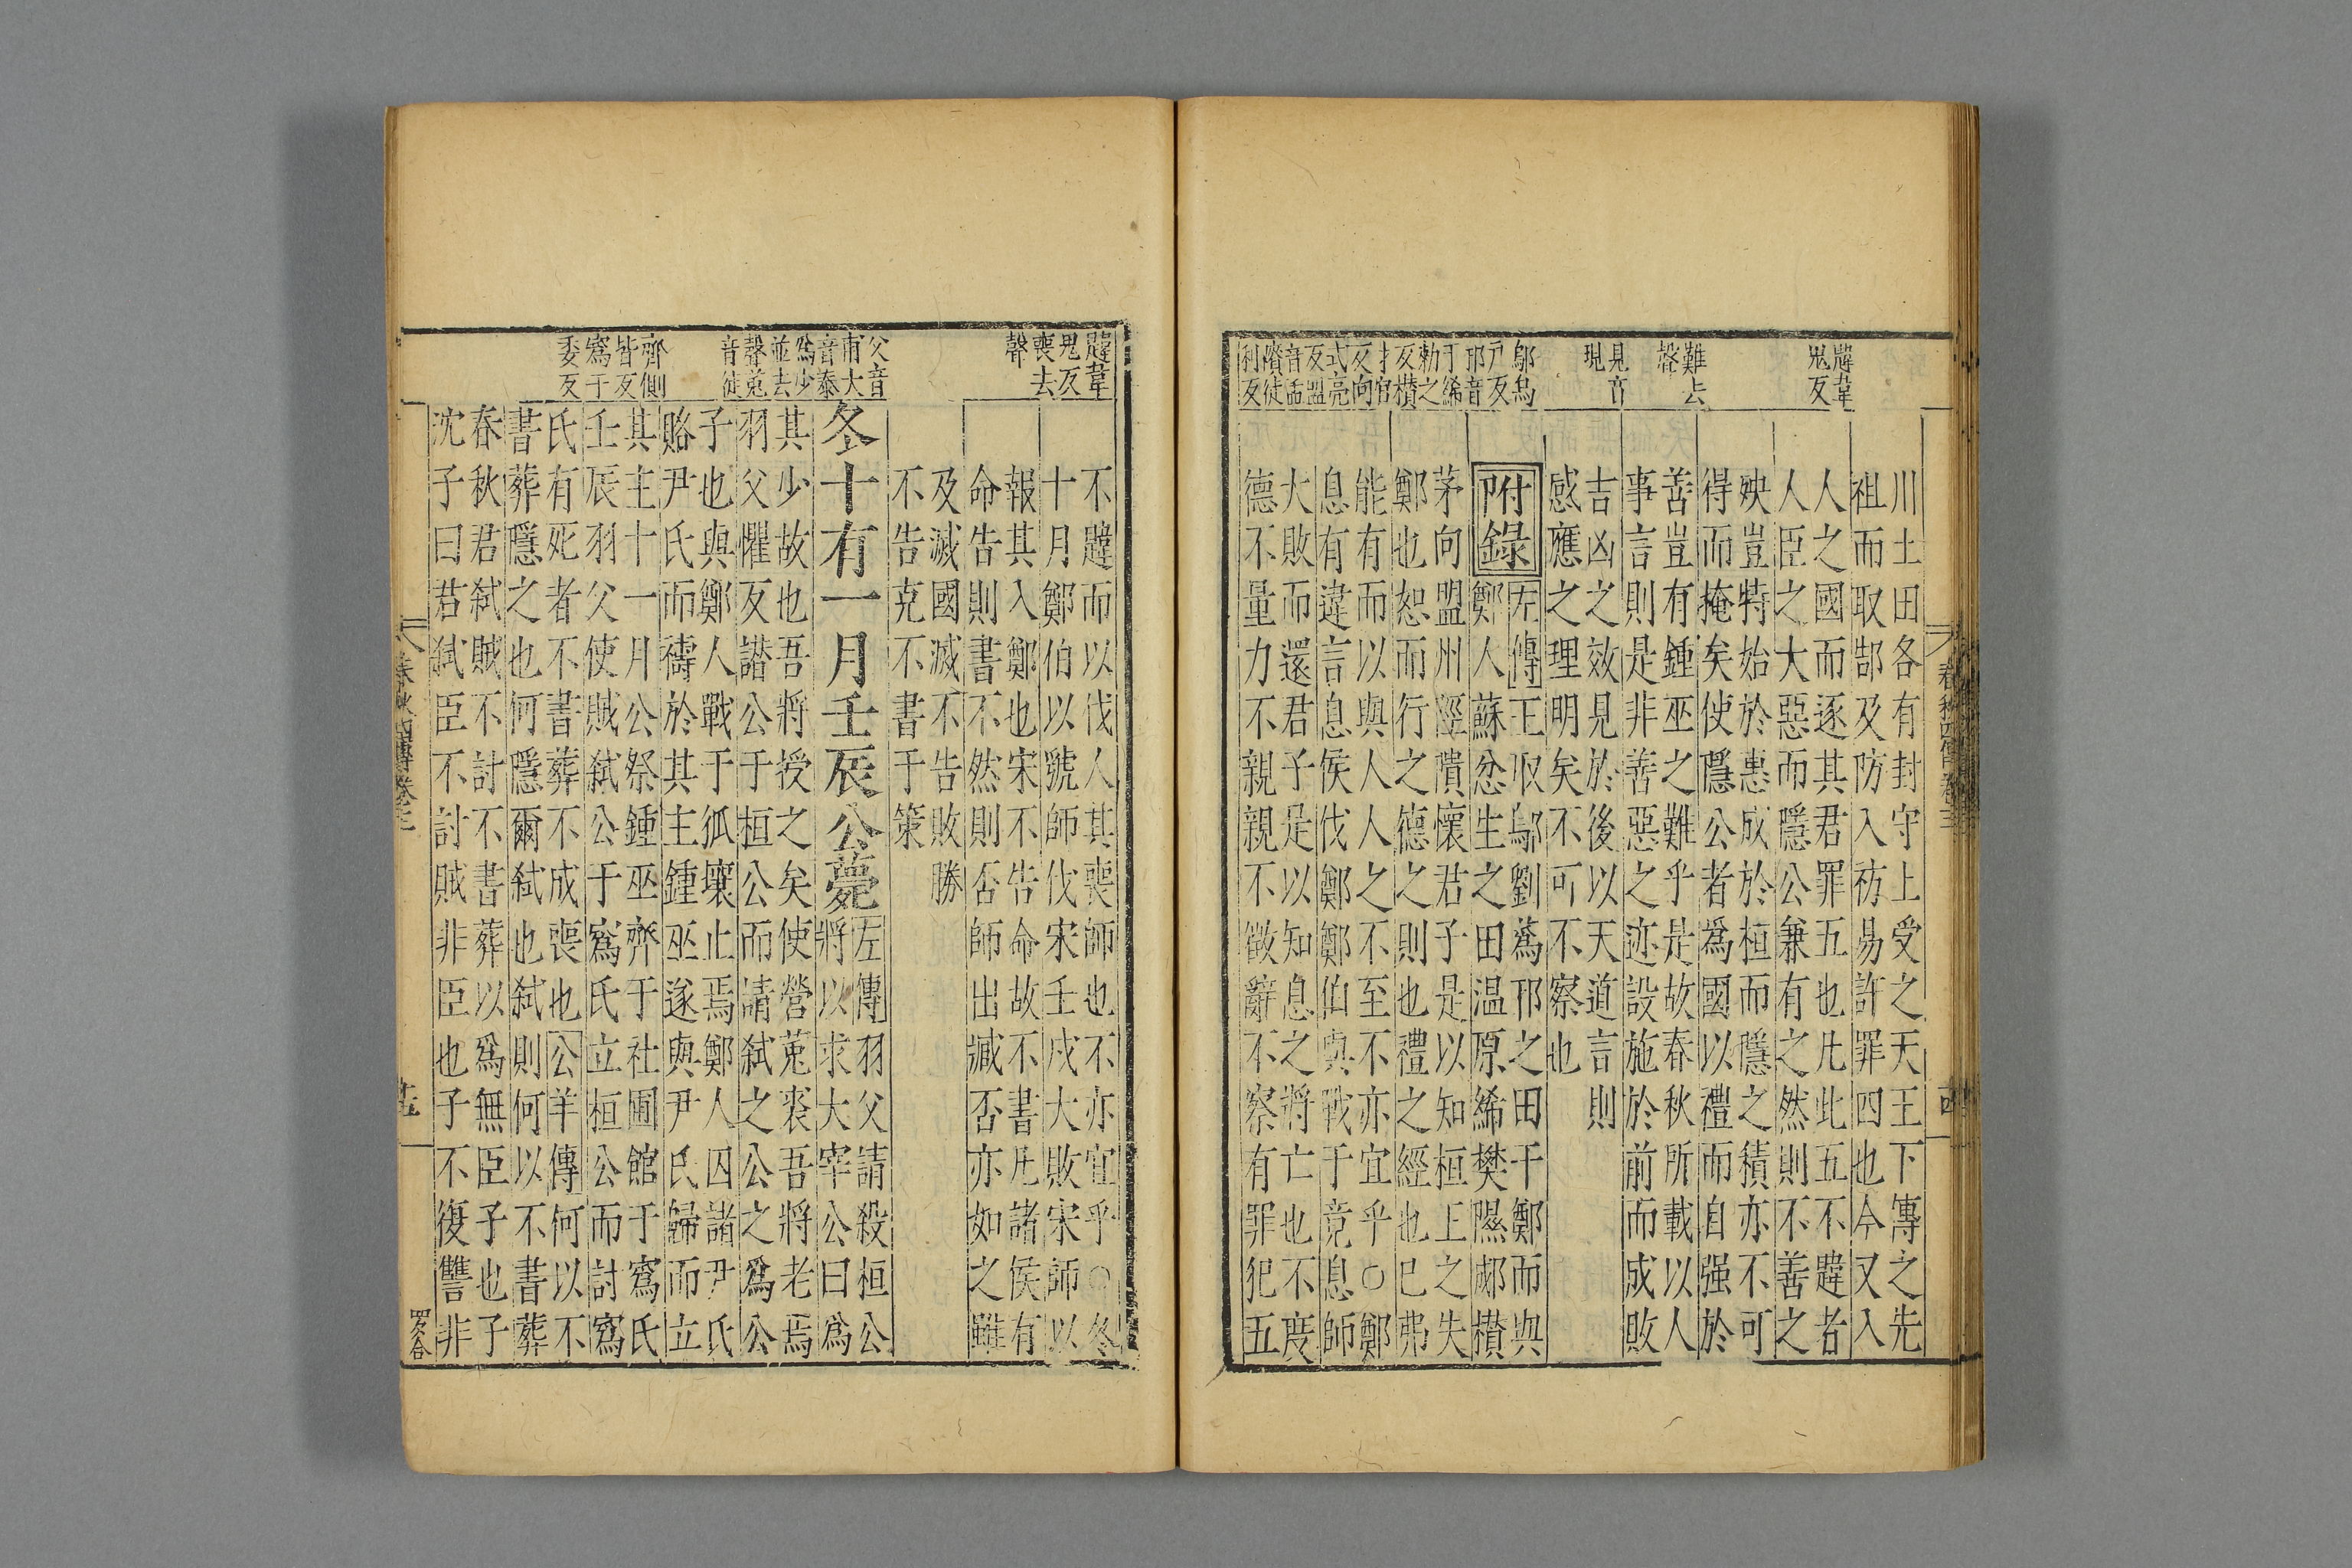 韙韋
鬼反
難去
聲
見音
現
鄔烏
戶反
邘音
于絺
勑之
反欑
才官
反向
式亮
反盟
隤徒
川土田各有封守上受之天王下傳之先
祖而取郜及防入祊易許罪四也今又入
人之國而逐其君罪五也凡此五不韙者
人臣之大惡而隱公兼有之然則不善之
殃豈特始於惠成於桓而隱之積亦不可
得而掩矣使隱公者爲國以禮而自强於
善豈有鍾巫之難乎是故春秋所載以人
事言則是非善惡之迹設施於前而成敗
吉凶之效見於後以天道言則
感應之理明矣不可不察也
附錄
左傳王取鄔劉蒍邘之田于鄭而與
鄭人蘇忿生之田温原絺樊隰郕欑
茅向盟州陘隤懷君子是以知桓王之失
鄭也恕而行之德之則也禮之經也己弗
能有而以與人人之不至不亦宜乎○鄭
息有違言息侯伐鄭鄭伯與戰于竟息師
大敗而還君子是以知息之將亡也不度
德不量力不親親不徵辭不察有罪犯五
春秋四傳卷三
韙韋
鬼反
喪去
聲
父音
甫大
音泰
爲少
並去
聲菟
音徒
齊側
皆反
寪于
委反
不韙而以伐人其喪師也不亦宜乎○冬
十月鄭伯以虢師伐宋壬戌大敗宋師以
報其入鄭也宋不告命故不書凡諸侯有
命告則書不然則否師出臧否亦如之雖
及滅國滅不告敗勝
不告克不書于策
冬十有一月壬辰公薨
左傳羽父請殺桓公
將以求大宰公曰爲
其少故也吾將授之矣使營菟裘吾將老焉
羽父懼反譖公于桓公而請弑之公之爲公
子也與鄭人戰于狐壤止焉鄭人囚諸尹氏
賂尹氏而禱於其主鍾巫遂與尹氏歸而立
其主十一月公祭鍾巫齊于社圃館于寪氏
壬辰羽父使賊弑公于寪氏立桓公而討寪
氏有死者不書葬不成喪也公羊傳何以不
書葬隱之也何隱爾弑也弑則何以不書葬
春秋君弑賊不討不書葬以爲無臣子也子
沈子曰君弑臣不討賊非臣也子不復讐非
春秋四傳卷三